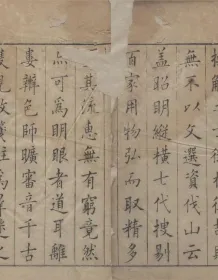 無不以文選資伐山云
蓋昭明縱橫七代搜剔
百家用物弘而取精多
其流惠無有窮竟然
亦可爲明眼者道耳離
婁辨色師曠審音千古